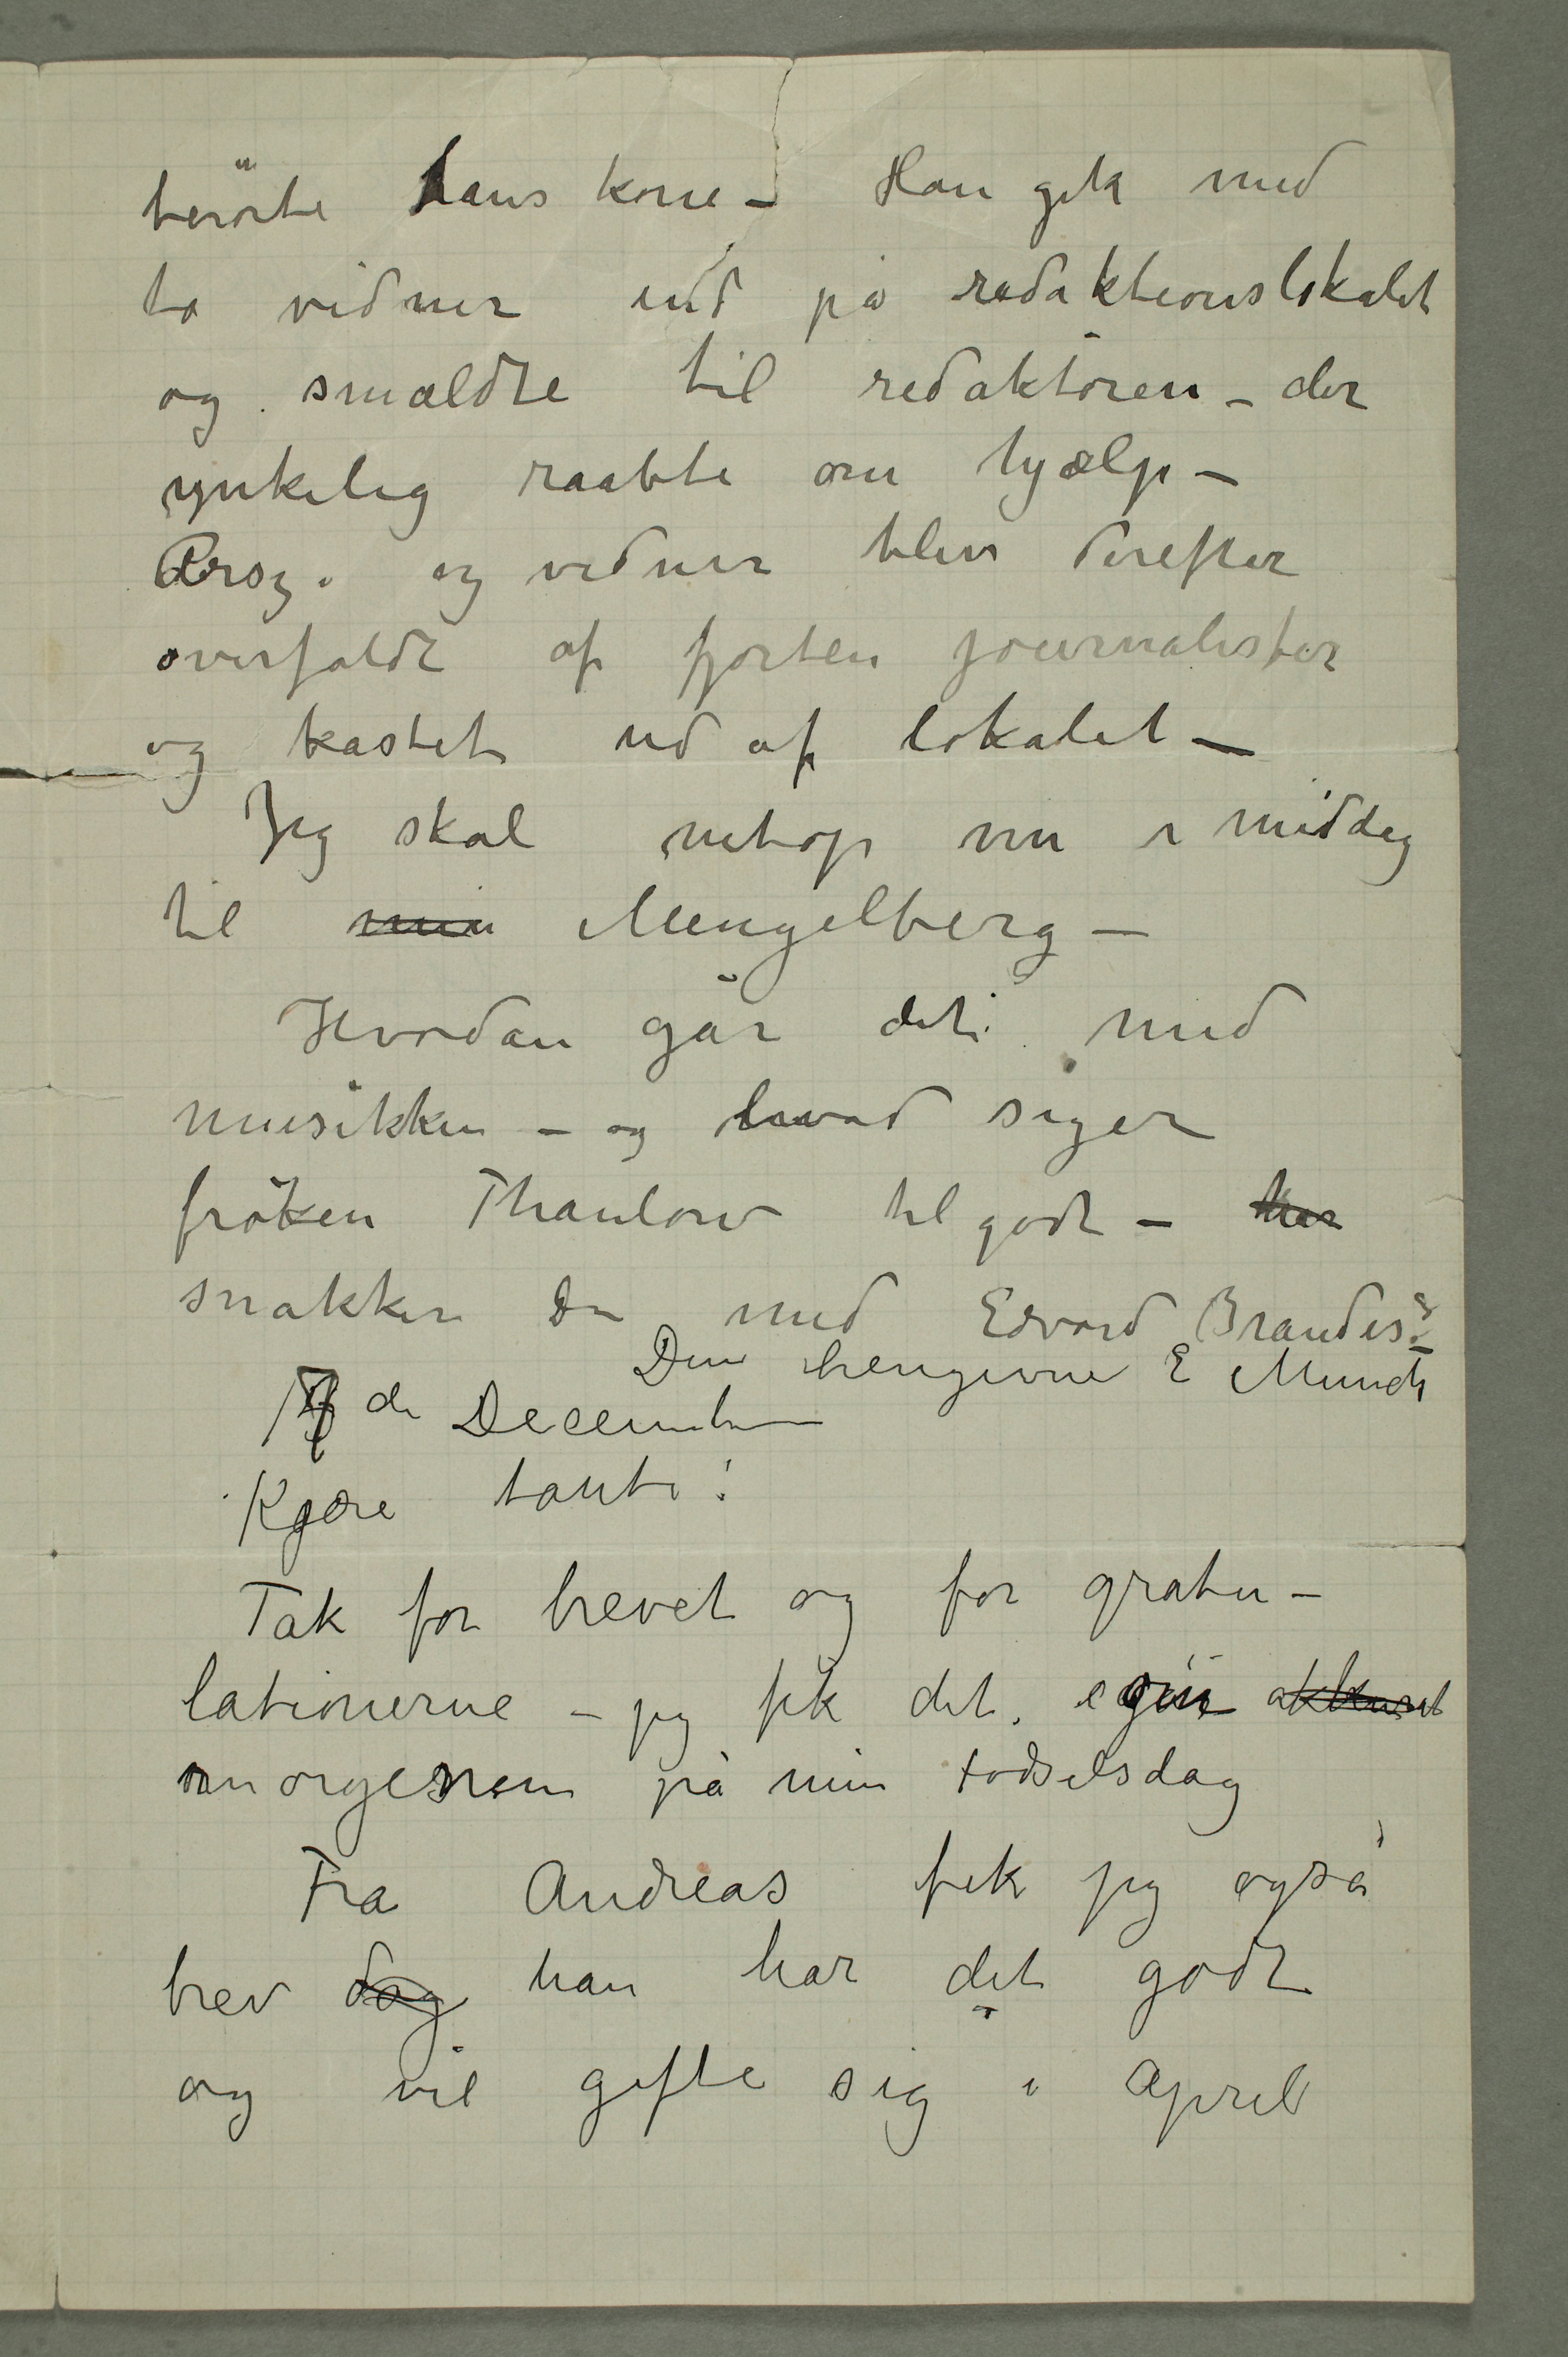 berörte hans kone – Han gik med
to vidner ind på redaktionslokalet
og smældte til redaktören – der
ynkelig raabte om hjælp –
Przy. og vidner blev derefter
overfaldt af fjorten journalister
og kastet ud af lokalet –
Jeg skal netop nu i middag
til min Mengelberg –
Hvordan går det med
musikken – og hvad siger
fröken Thaulow til godt – har
snakker du med Edvard Brandes? –
Din hengivne E Munch
de December
Kjære tante!
Tak for brevet og for gratu-
lationerne – jeg fik det akkurat
morgenen på min födselsdag
Fra Andreas fik jeg også
brev dog han har det godt
og vil gifte sig i April